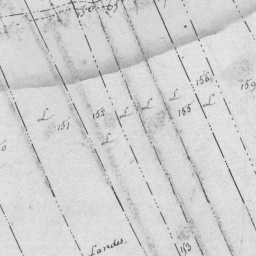 156
159
L
151
152
L
L
L
155
L
L
Landes
153